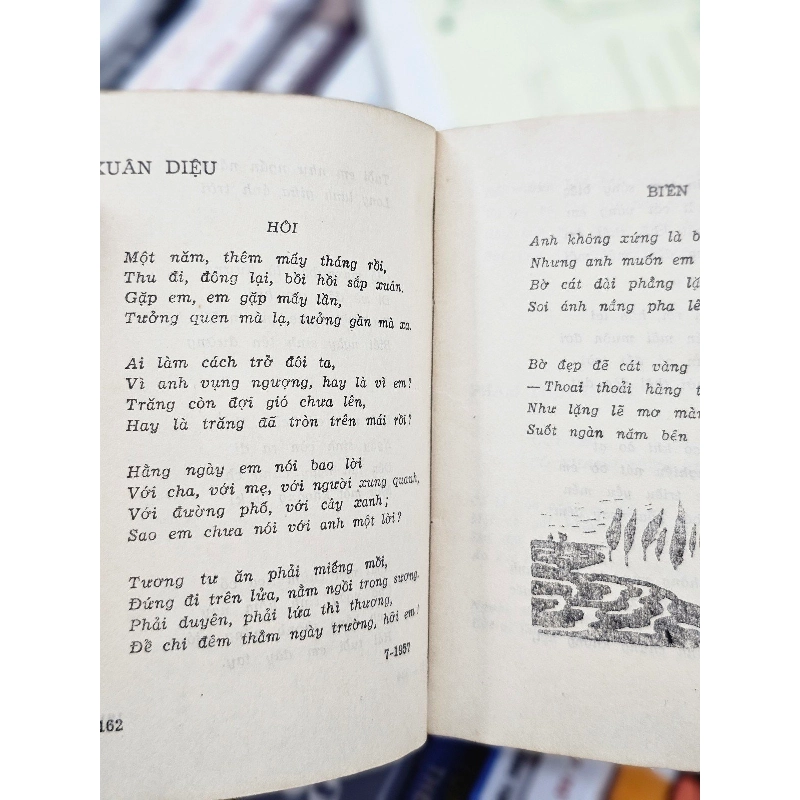 XUÂN DIỆU
HỎI
Một năm, thêm mấy tháng rồi,
Thu đi, đông lại, bồi hồi sắp xuân.
Gặp em, em gặp mấy lần,
Tưởng quen mà lạ, tưởng gần mà xa.
Ai làm cách trở đôi ta,
Vì anh vụng ngượng, hay là vì em?
Trăng còn đợi gió chưa lên,
Hay là trăng đã tròn trên mái rồi?
Hằng ngày em nói bao lời
Với cha, với mẹ, với người xung quanh,
Với đường phố, với cây xanh;
Sao em chưa nói với anh một lời?
Tương tư ăn phải miếng mồi,
Đứng đi trên lửa, nằm ngồi trong sương.
Phải duyên, phải lứa thì thương,
Để chi đêm thẳm ngày trường, hỡi em!
7-1957
162
BIỂN
Anh không xứng là
Nhưng anh muốn em
Bờ cát dài phẳng
Soi ánh nắng pha lê
Bờ đẹp đẽ cát vàng
— Thoai thoải hàng
Như lặng lẽ mơ
Suốt ngàn năm bên